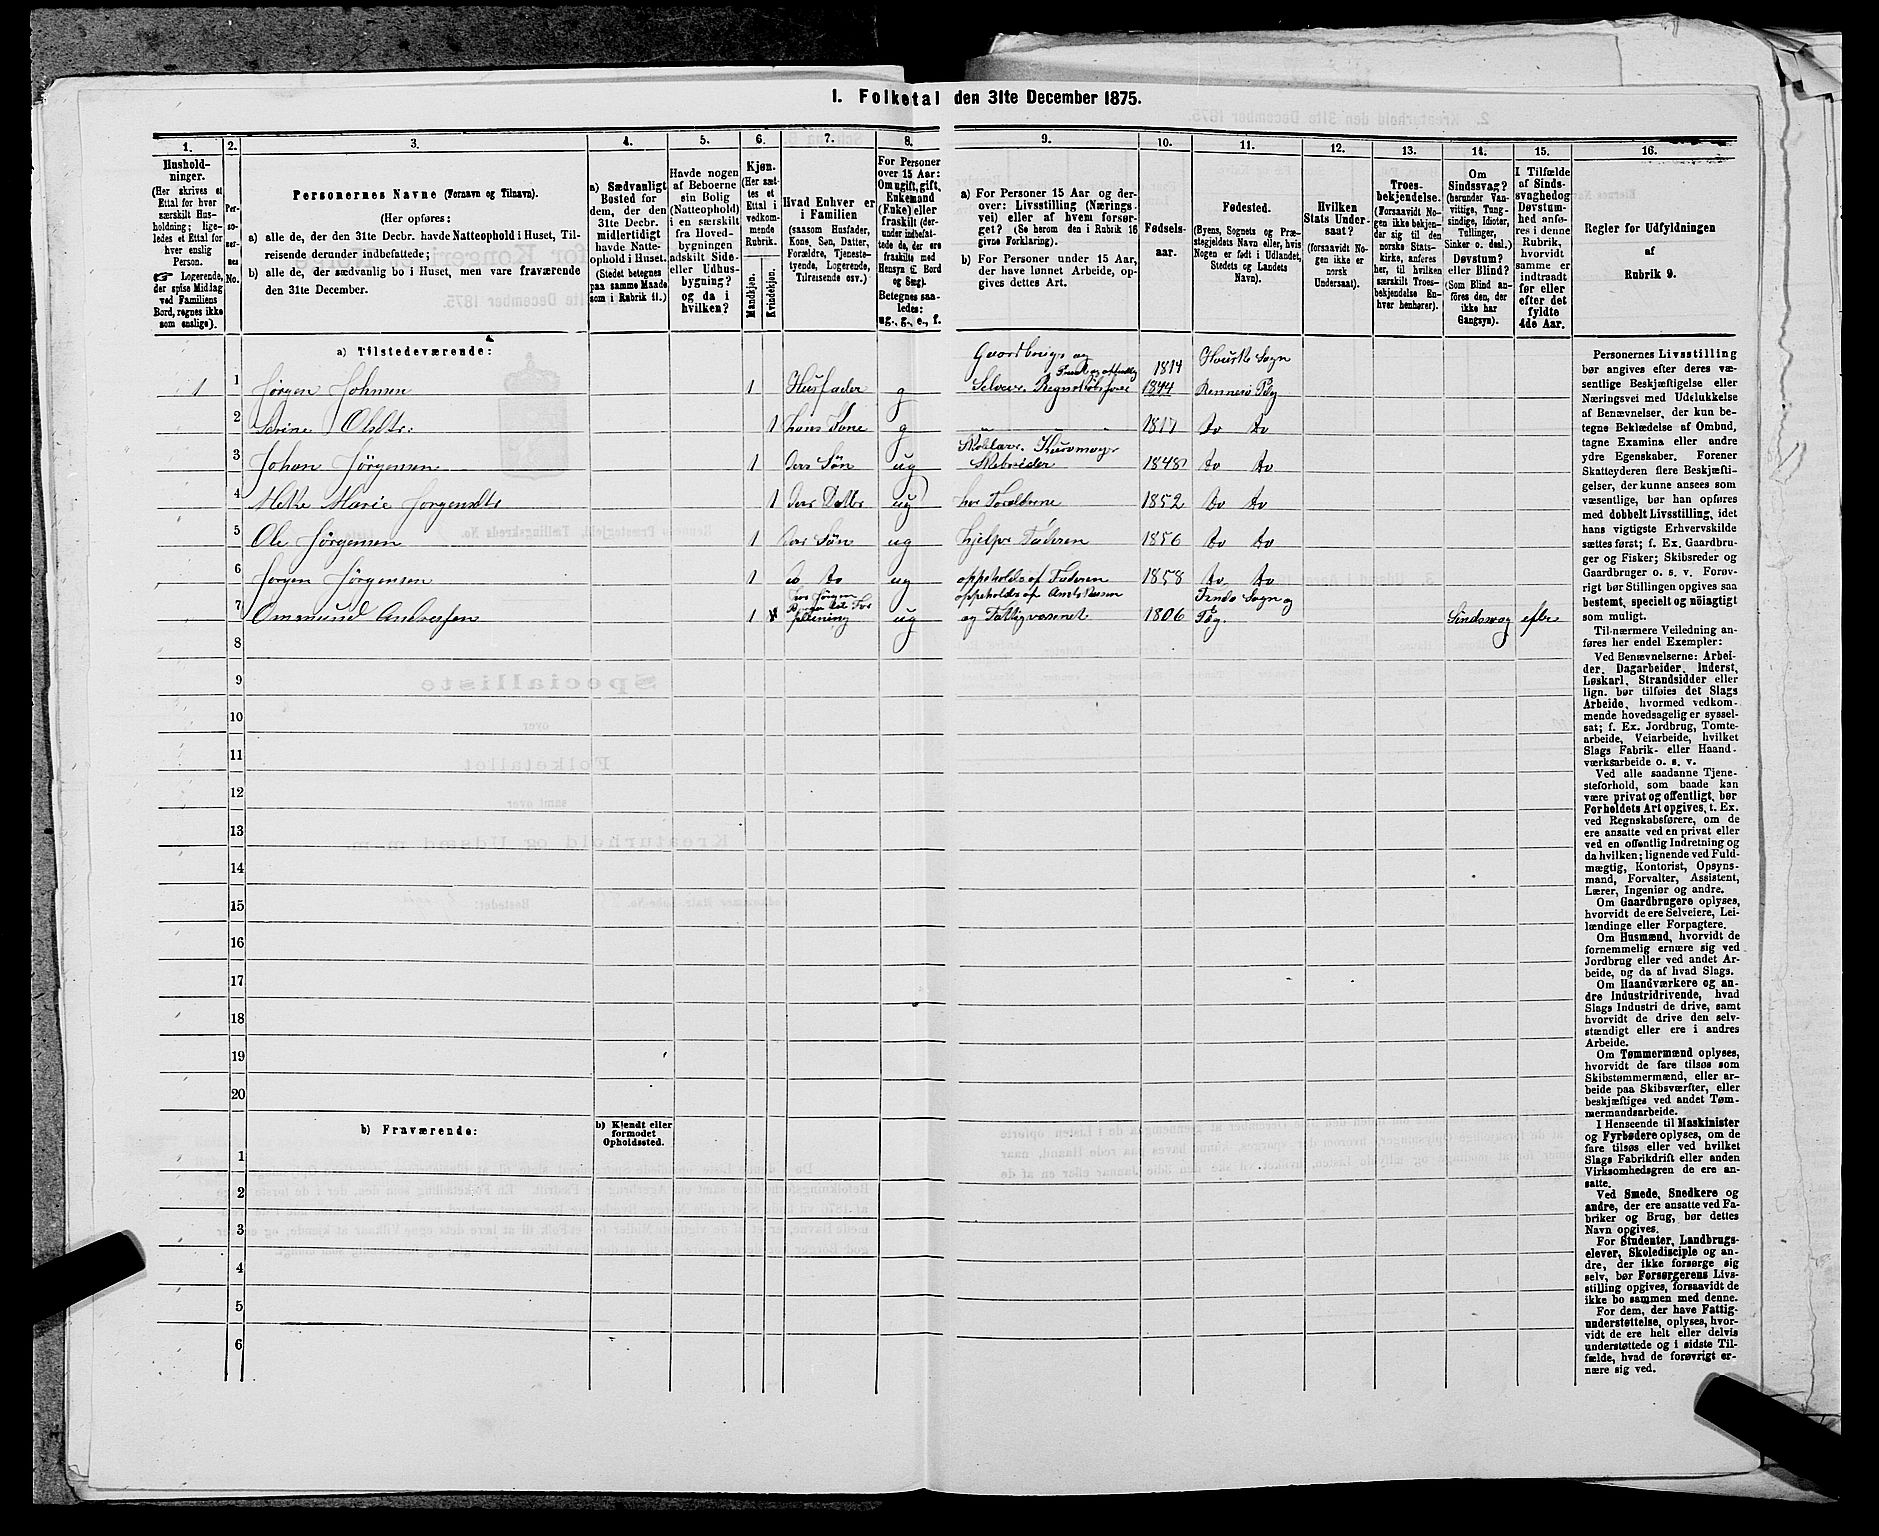 1. Folketal den 31te December 1875.
1. 2. 3. 4. 5. 6. 7. 8. 9. 10. 11. 12. 13. 14. 15. 16.
Hushold-
ninger.
(Her skrives et
Ettal for hver
særskilt Hus-
holdning; lige-
ledes et Ettal for
hver enslig
Person.
☞ Logerende,
der spise Middag
ved Familiens
Bord, regnes ikke
som enslige).
Per-
so-
ner-
nes
No.
Personernes Navne (Fornavn og Tilnavn).
(Her opføres:
a) alle de, der den 31te Decbr. havde Natteophold i Huset, Til-
reisende derunder indbefattede;
b) alle de, der sædvanlig bo i Huset, men vare fraværende
den 31te December.
a) Sædvanligt
Bosted for
dem, der den
31te Decbr.
midlertidigt
havde Natte-
ophold i Huset.
(Stedet betegnes
paa samme Maade
som i Rubrik 11.)
Havde nogen
af Beboerne
sin Bolig
(Natteophold)
i en særskilt
fra Hoved-
bygningen
adskilt Side-
eller Udhus-
bygning?
og da i
hvilken?
Kjøn.
(Her sæt-
tes et
Ettal i
vedkom-
mende
Rubrik.
Mandkjøn.
Kvindekjøn.
Hvad Enhver er
i Familien
(saasom Husfader,
Kone, Søn, Datter,
Forældre, Tjeneste-
tyende, Logerende,
Tilreisende osv.)
For Personer
over 15 Aar:
Om ugift, gift,
Enkemand
(Enke) eller
fraskilt (der-
under indbefat-
tede de, der ere
fraskilte med
Hensyn til Bord
og Seng).
Betegnes saa-
ledes:
ug., g., e., f.
a) For Personer 15 Aar og der-
over: Livsstilling (Nærings-
vei) eller af hvem forsør-
get? (Se herom den i Rubrik 16
givne Forklaring).
b) For Personer under 15 Aar,
der have lønnet Arbeide, op-
gives dettes Art.
Fødsels-
aar.
Fødested.
(Byens, Sognets og Præ-
stegjeldets Navn eller, hvis
Nogen er født i Udlandet,
Stedets og Landets
Navn).
Hvilken
Stats Under-
saat?
(forsaavidt No-
gen ikke er
norsk
Undersaat).
Troes-
bekjendelse.
(Forsaavidt No-
gen ikke bekjen-
der sig til den
norske Stats-
kirke, anføres
her, til hvilken
særskilt Troes-
bekjendelse En-
hver henhører).
Om
Sindssvag?
(herunder Van-
vittige, Tung-
sindige, Idioter,
Tullinger,
Sinker o. desl.)
Døvstum?
eller Blind?
(Som Blind an-
føres den, der
ikke har
Gangsyn).
I Tilfælde
af Sinds-
svaghed og
Døvstum-
hed anfø-
res i denne
Rubrik,
hvorvidt
samme er
indtraadt
før eller
efter det
fyldte
4de Aar.
Regler for Udfyldningen
af
Rubrik 9.
a) Tilstedeværende:
Gaardbrug og
1814 Houske Sogn
1 1 Jørgen Johnsen 1 Husfader g Selveier. 1844 Rennesø Pg
2 Serine Olsdtr: 1 hans Kone g " " " 1817 do do
3 Johan Jörgensen 1 deres Søn ug 1848 do do
4 Mette Marie Jørgensdtr 1 deres Datter ug hos Forældrene 1852 do do
5 Ole Jörgensen 1 deres Søn ug hjelper Faderen 1856 do do
6 Jørgen Jörgensen 1 do do ug oppeholds af Faderen 1858 do do
oppeholds af Amtskassen Findø Sogn og
7 Ommund Andersen 1 ug og Fattigvæsenet 1806 Pg. Sindssvag efter
8
9
10
11
12
13
14
15
16
17
18
19
20
b) Fraværende:
b) Kjendt eller
formodet
Opholdssted.
1
2
3
4
5
6
Personernes Livsstilling
bør angives efter deres væ-
sentlige Beskjæftigelse eller
Næringsvei med Udelukkelse
af Benævnelser, der kun be-
tegne Beklædelse af Ombud,
tagne Examina eller andre
ydre Egenskaber. Forener
Skatteyderen flere Beskjæfti-
gelser, der kunne ansees som
væsentlige, bør han opføres
med dobbelt Livsstilling, idet
hans vigtigste Erhvervskilde
sættes først; f. Ex. Gaardbru-
ger og Fisker; Skibsreder og
Gaardbruger o. s. v. Forøv-
rigt bør Stillingen opgives saa
bestemt, specielt og nöiagtigt
som muligt.
Til nærmere Veiledning an-
føres her endel Exempler:
Ved Benævnelserne: Arbei-
der, Dagarbeider, Inderst,
Løskarl, Strandsidder eller
lign. bør tilføies det Slags
Arbeide, hvormed vedkom-
mende hovedsagelig er syssel-
sat; f. Ex. Jordbrug, Tomte-
arbeide, Veiarbeide, hvilket
Slags Fabrik- eller Haand-
værksarbeide o. s. v.
Ved alle saadanne Tjene-
steforhold, som baade kan
være privat og offentligt, bør
Forholdets Art opgives, t. Ex.
ved Regnskabsførere, om de
ere ansatte ved en privat eller
ved en offentlig Indretning og
da hvilken; lignende ved Fuld-
mægtig, Kontorist, Opsyns-
mand, Forvalter, Assistent,
Lærer, Ingeniør og andre.
Om Gaardbrugere oplyses,
hvorvidt de ere Selveiere, Lei-
lændinge eller Forpagtere.
Om Husmænd, hvorvidt de
fornemmelig ernære sig ved
Jordbrug eller ved andet Ar-
beide, og da af hvad Slags.
Om Haandværkere og an-
dre Industridrivende, hvad
Slags Industri de drive, samt
hvorvidt de drive den selv-
stændigt eller ere i andres
Arbeide.
Om Tømmermænd oplyses,
hvorvidt de fare tilsøs som
Skibstømmermænd, eller ar-
beide paa Skibsværfter, eller
beskjæftiges ved andet Tøm-
mermandsarbeide.
I Henseende til Maskinister
og Fyrbødere oplyses, om de
fare tilsøs eller ved hvilket
Slags Fabrikdrift eller anden
Virksomhedsgren de ere an-
satte.
Ved Smede, Snedkere og
andre, der ere ansatte ved Fa-
briker og Brug, bør dettes
Navn opgives.
For Studenter, Landbrugs-
elever, Skoledisciple og an-
dre, der ikke forsørge sig
selv, bør Forsørgerens Livs-
stilling opgives, forsaavidt de
ikke bo sammen med denne.
For dem, der have Fattig-
understøttelse, oplyses, hvor-
vidt de ere helt eller delvis
understøttede og i sidste Til-
fælde, hvad de forøvrigt er-
nære sig ved.